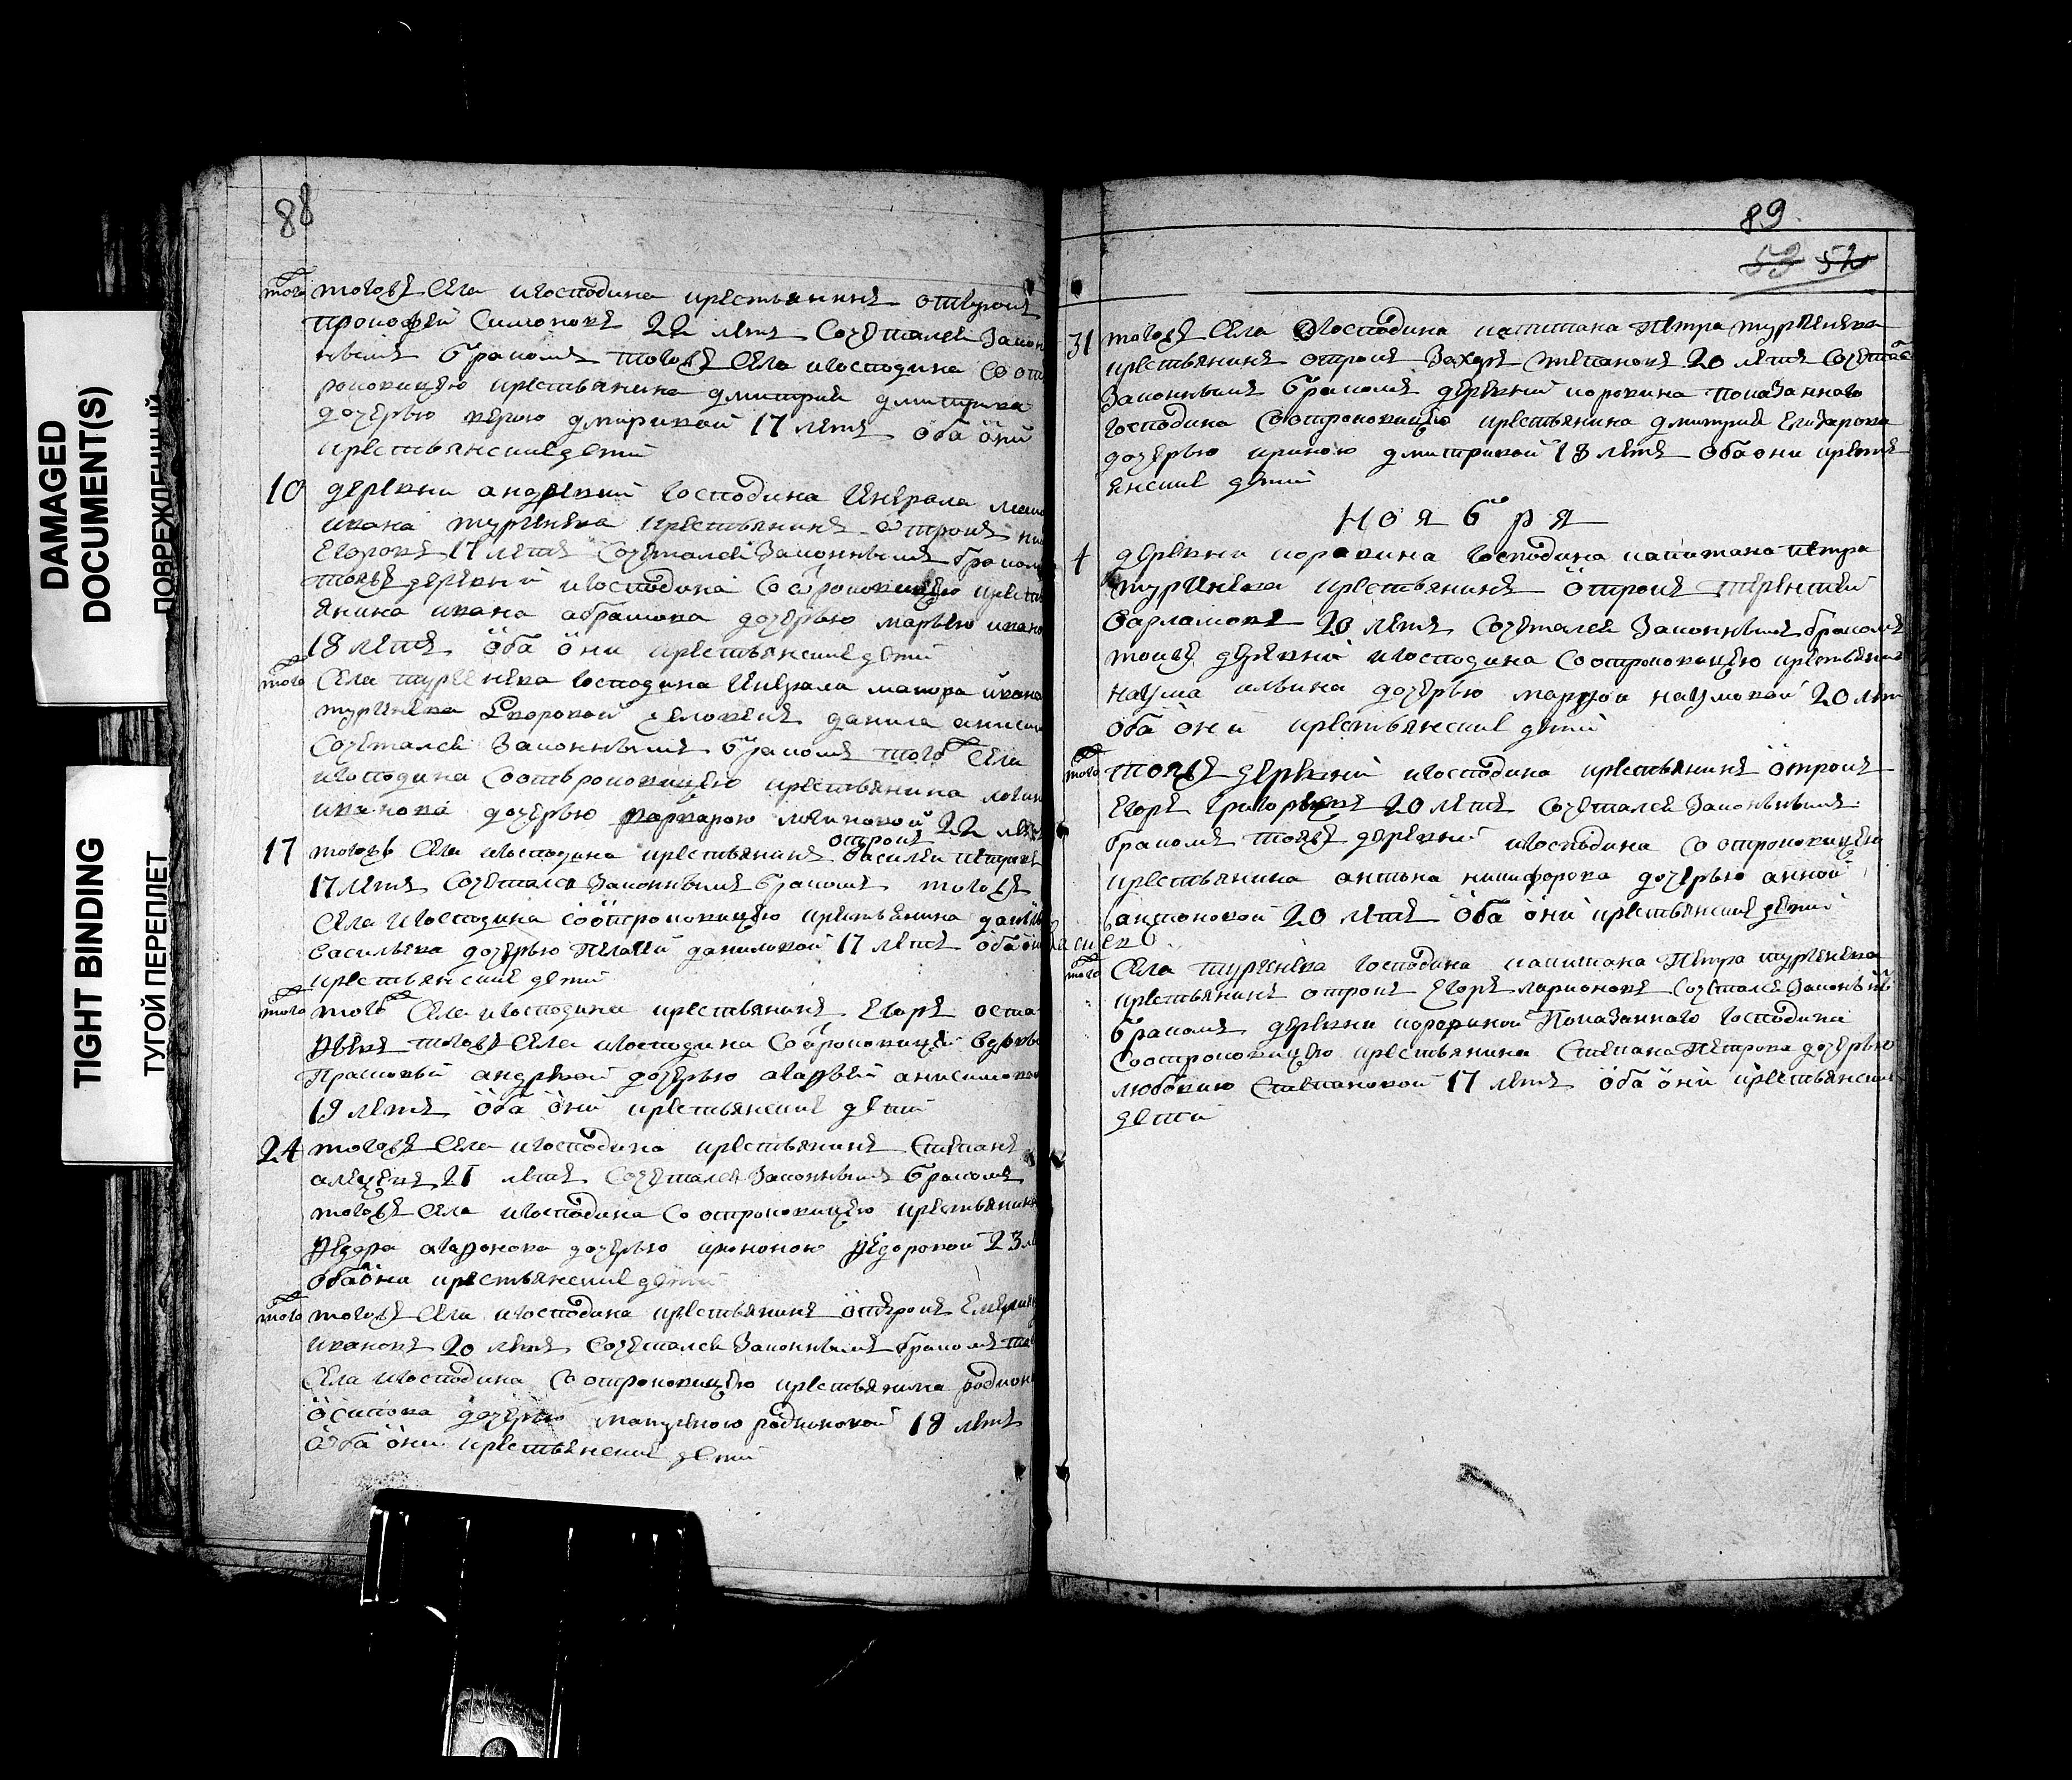 DAMAGED
DOCUMENT(S)
ПОВРЕЖДЕННЫЙ
TIGHT BINDING
ТУГОЙ ПЕРЕПЛЕТ
88
того тогожъ села игосподина крестьянинъ отрокъ
прокофей Симоновъ 22 летъ Сочеталси закон
нымъ бракомъ тогожъ села игосподина Со от
роковицею крестьянина дмитрия дмитрива
дочерью верою дмиривой 17 летъ оба они
крестьянские дети
10 деревни андревки господина генерала
ивана тургенева крестьянинъ отрокъ
Егоровъ 17 летъ Сочеталси законнымъ браком
тойже деревни игосподина Со отроковицею крест
янина ивана абрамова дочерью марьею ивано
18 летъ оба они крестьянские дети
того Села тургенева господина генерала маиора ивана
тургенева дворовой человекъ данила аниси
Сочеталси законнымъ бракомъ того Села
игосподина Соотроковицею крестьянина
иванова дочерью варварою 22 ле
отрокъ
17 тогожъ Села игосподина крестьянинъ василеи петровъ
17 летъ Сочеталси законнымъ бракомъ тогожъ
Села игосподина Соотроковицею крестьянина данилы
васильева дочерью пелагеи даниловой 17 летъ оба они
крестьянские дети
того того Села игосподина крестьянинъ Егоръ
тогожъ Села игосподина Со отроковицеи вдовы
Прасковьи андревой дочерью анисимовой
19 летъ оба они крестьянские дети
24 тогожъ Села игосподина крестьянинъ Степанъ
21 летъ Сочеталси законнымъ бракомъ
тогожъ Села игосподина Со отроковицею крестьянина
Федора дочерью Федоровой 23 л
оба они крестьянские дети
того тогожъ Села игосподина крестьянинъ отрокъ
ивановъ 20 летъ Сочеталси законнымъ бракомъ то
Села игосподина Со отроковицею крестьянина родион
осипова дочерью матреною родионовой 18 летъ
оба они крестьянские дети
89
53 52
31 тогожъ Села игосподина капитана Петра тургенева
крестьянинъ отрокъ Захаръ степановъ 20 летъ Сочетас
законнымъ бракомъ деревни коровина показаннаго
господина Соотроковицею крестьянина дмитрия Елизарова
дочерью ириною дмитривой 18 летъ оба они кресть
янские дети
Ноября
4 деревни коровина господина капитана петра
тургенева крестьянинъ отрокъ терентеи
варламовъ 20 летъ Сочеталси законнымъ бракомъ
тойже деревни игосподина Соотроковицею крестьянина
наума ильина дочерью марфой наумовой 20 лет
оба они крестьянские дети
того тойже деревни игосподина крестьянинъ отрокъ
Егоръ григорьевъ 20 летъ сочеталси законнымъ
бракомъ тойже деревни игосподина Со отроковицею
крестьянина антона никифорова дочерью анной
антоновой 20 летъ оба они крестьянские дети
того Села тургенева господина капитана Петра тургенева
крестьянинъ отрокъ Егоръ ларионовъ сочеталси законны
бракомъ деревни коровиной Показаннаго господина
Соотроковицею крестьянина Степана Петрова дочерью
любовию Степановой 17 летъ оба они крестьянские
дети